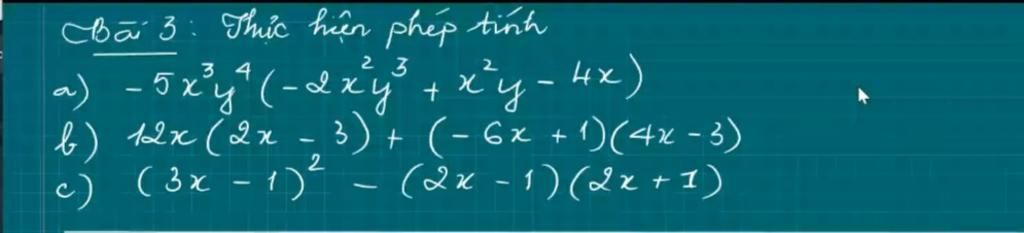 Bài 3: Thực hiện phép tính
a) -5x³y⁴(-2x²y³ + x²y - 4x)
b) 12x(2x - 3) + (-6x + 1)(4x - 3)
c) (3x - 1)² - (2x - 1)(2x + 1)